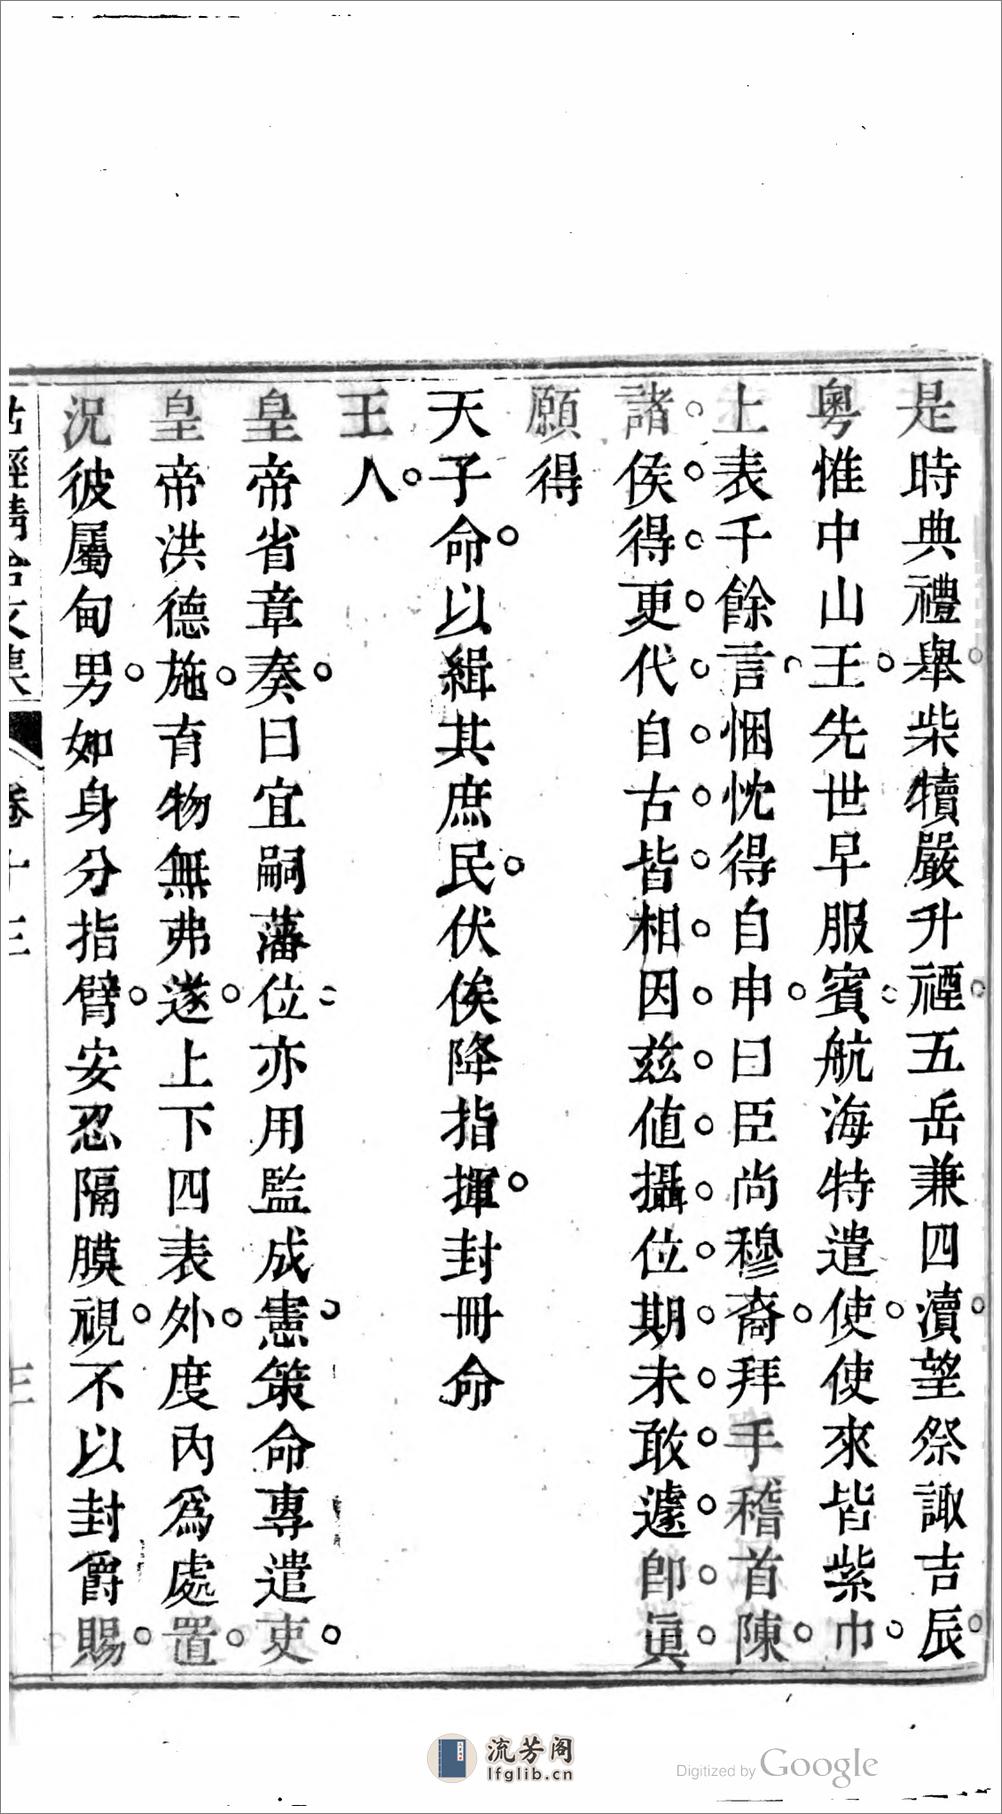 是時典禮舉柴犢嚴升禋五岳兼四瀆望祭諏吉辰
粵惟中山王先世早服賓航海特遣使使來皆紫巾
上表千餘言悃忱得自申曰臣尚穆裔拜手稽首陳
諸侯得更代自古皆相因茲值攝位期未敢遽卽眞
願得
天子命以緝其庶民伏俟降指揮封冊命
王人
皇帝省章奏曰宜嗣藩位亦用監成憲策命專遣吏
皇帝洪德施育物無弗遂上下四表外度內爲處置
況彼屬甸男如身分指臂安忍隔膜視不以封爵賜
詁經精舍文集
卷十三
三
流芳阁
lfglib.cn
Digitized by Google